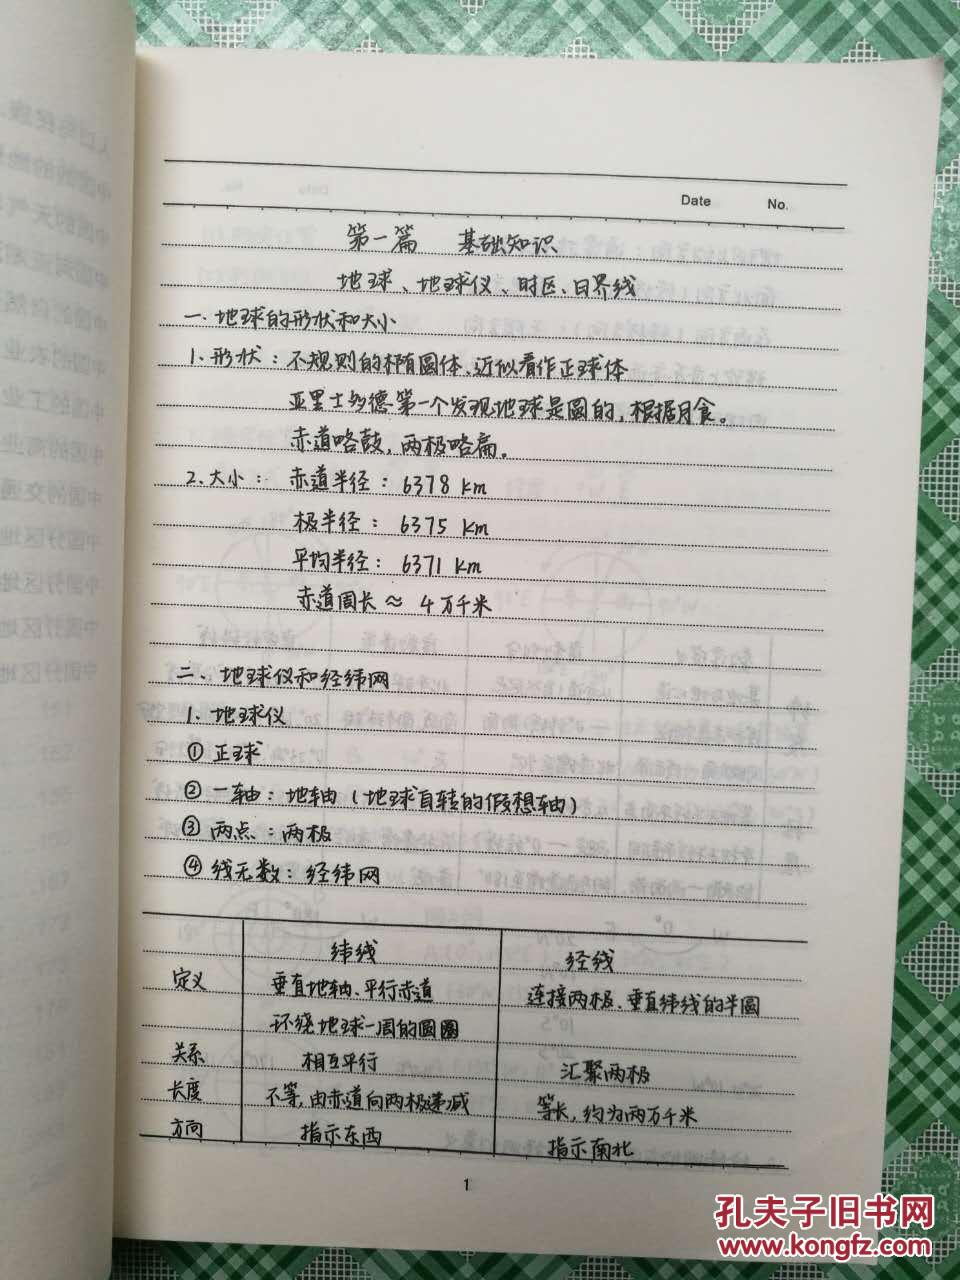 Date No.
第一篇 基础知识
地球、地球仪、时区、日界线
一、地球的形状和大小
1、形状：不规则的椭圆体、近似看作正球体
亚里士多德第一个发现地球是圆的，根据月食。
赤道略鼓，两极略扁。
2、大小：赤道半径：6378 km
极半径：6375 km
平均半径：6371 km
赤道周长≈ 4万千米
二、地球仪和经纬网
1、地球仪
① 正球
② 一轴：地轴（地球自转的假想轴）
③ 两点：两极
④ 线无数：经纬网
纬线 经线
定义 垂直地轴、平行赤道 连接两极、垂直纬线的半圆
环绕地球一周的圆圈
关系 相互平行 汇聚两极
长度 不等，由赤道向两极递减 等长，约为两万千米
方向 指示东西 指示南北
1
孔夫子旧书网
www.kongfz.com